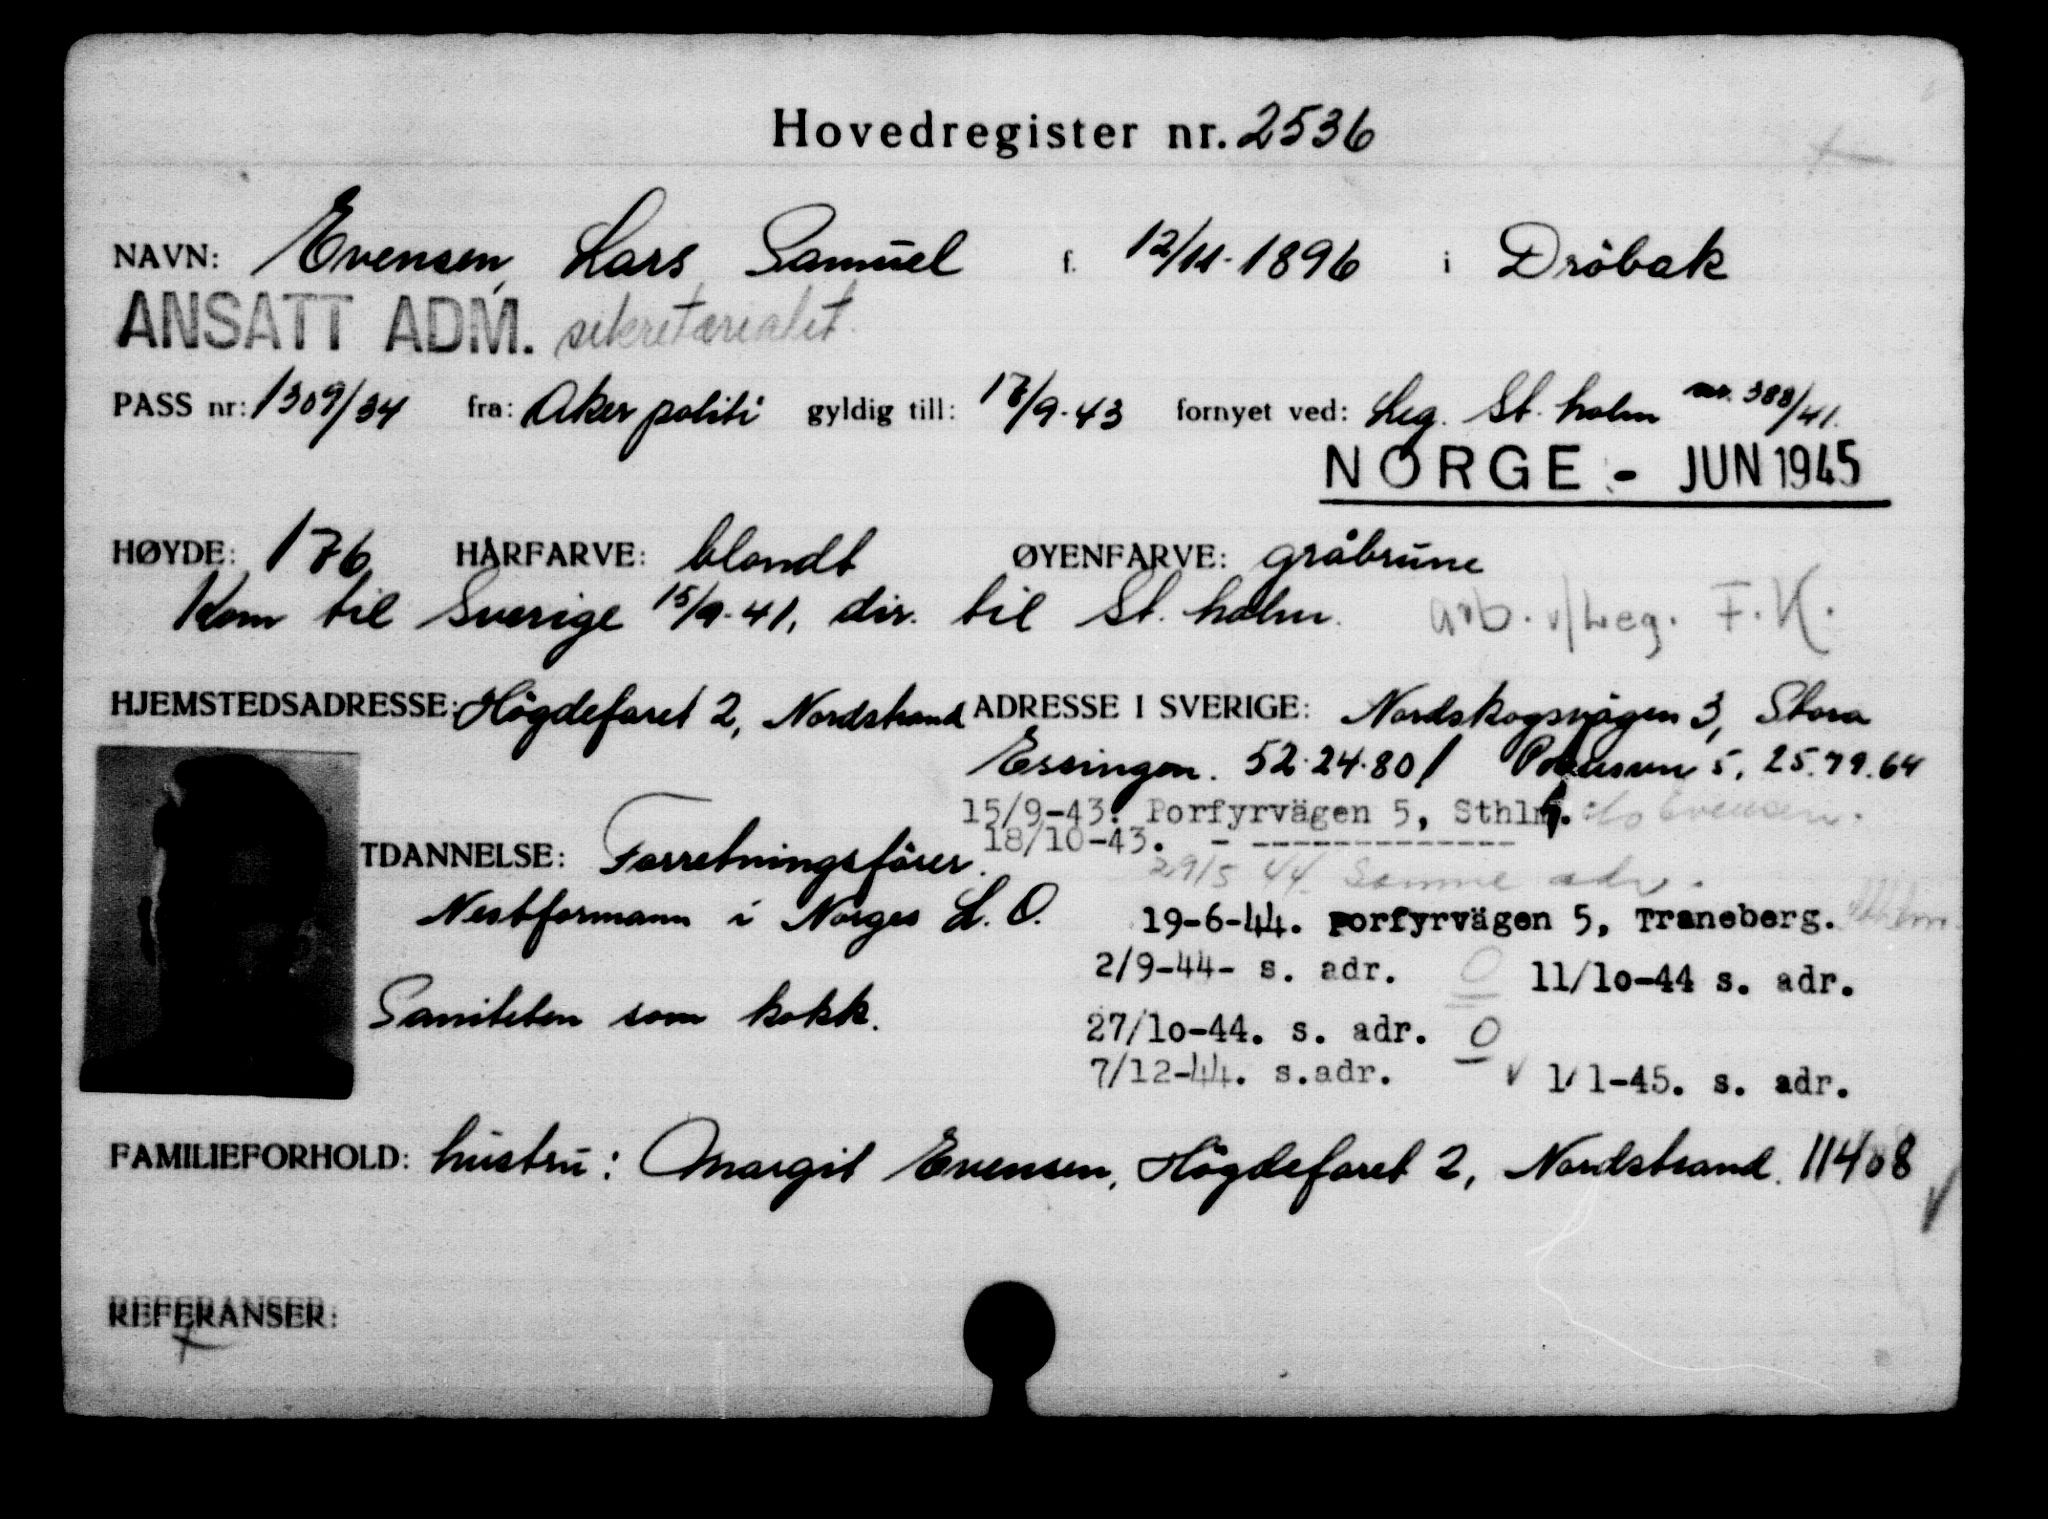 Hovedregister nr. 2536
NAVN: Evensen, Lars Samuel f. 12/11-1896 i Dröbak
ANSATT ADM. sekretærialet.
PASS nr: 1309/34 fra: Aker politi gyldig till: 18/9-43 fornyet ved: Leg. St. holm nr. 388/41.
NORGE - JUN 1945
HØYDE: 176 HÅRFARVE: blondt ØYENFARVE: gråbrune
Kom til Sverige 15/9-41, dir. til St. holm. arb. v/Leg. F.K.
HJEMSTEDSADRESSE: Högdefaret 2, Nordstrand
ADRESSE I SVERIGE: Nordskogsvägen 3, Stora
Essingen. 52.24.80 / 5, 25.79.64
15/9-43. Porfyrvägen 5, Sthlm. c/o Evensen.
18/10-43. - -------------
29/5 44. Samme adr.
19-6-44. Porfyrvägen 5, Traneberg. Sthlm.
2/9-44- s. adr. 0 11/10-44 s. adr.
27/10-44. s. adr. 0
7/12-44. s.adr. 1/1-45. s. adr.
TDANNELSE: Forretningsförer.
Nestformann i Norges L.O.
Saniteten som kokk.
FAMILIEFORHOLD: hustru: Margit Evensen, Högdefaret 2, Nordstrand. 11408
REFERANSER: